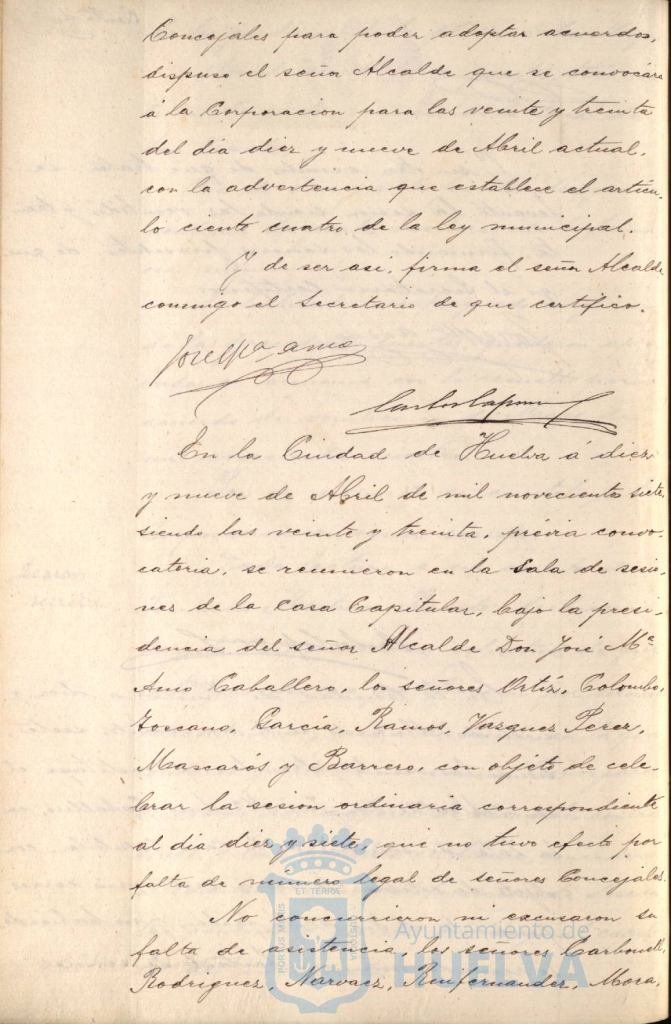 Concejales para poder adoptar acuerdos,
dispuso el señor Alcalde que se convocára
á la Corporacion para las veinte y treinta
del dia diez y nueve de Abril actual,
con la advertencia que establece el artícu-
lo ciento cuatro de la ley municipal.
Y de ser asi, firma el señor Alcalde
conmigo el Secretario de que certifico.
José Mª Amo
En la Ciudad de Huelva á diez
y nueve de Abril de mil novecientos siete,
siendo las veinte y treinta, prévia convo-
catoria, se reunieron en la Sala de sesio-
nes de la Casa Capitular, bajo la presi-
dencia del señor Alcalde Don José Mª
Amo Caballero, los señores Ortíz, Colombo,
Toscano, García, Ramos, Vazquez Perez,
Mascarós y Barrero, con objeto de cele-
brar la sesion ordinaria correspondiente
al dia diez y siete, que no tuvo efecto por
falta de número legal de señores Concejales.
No concurrieron ni excusaron su
falta de asistencia, los señores Carbonell,
Rodriguez, Narvaez, Mora,
PORTUS MARIS
ET TERRE
Ayuntamiento de
HUELVA